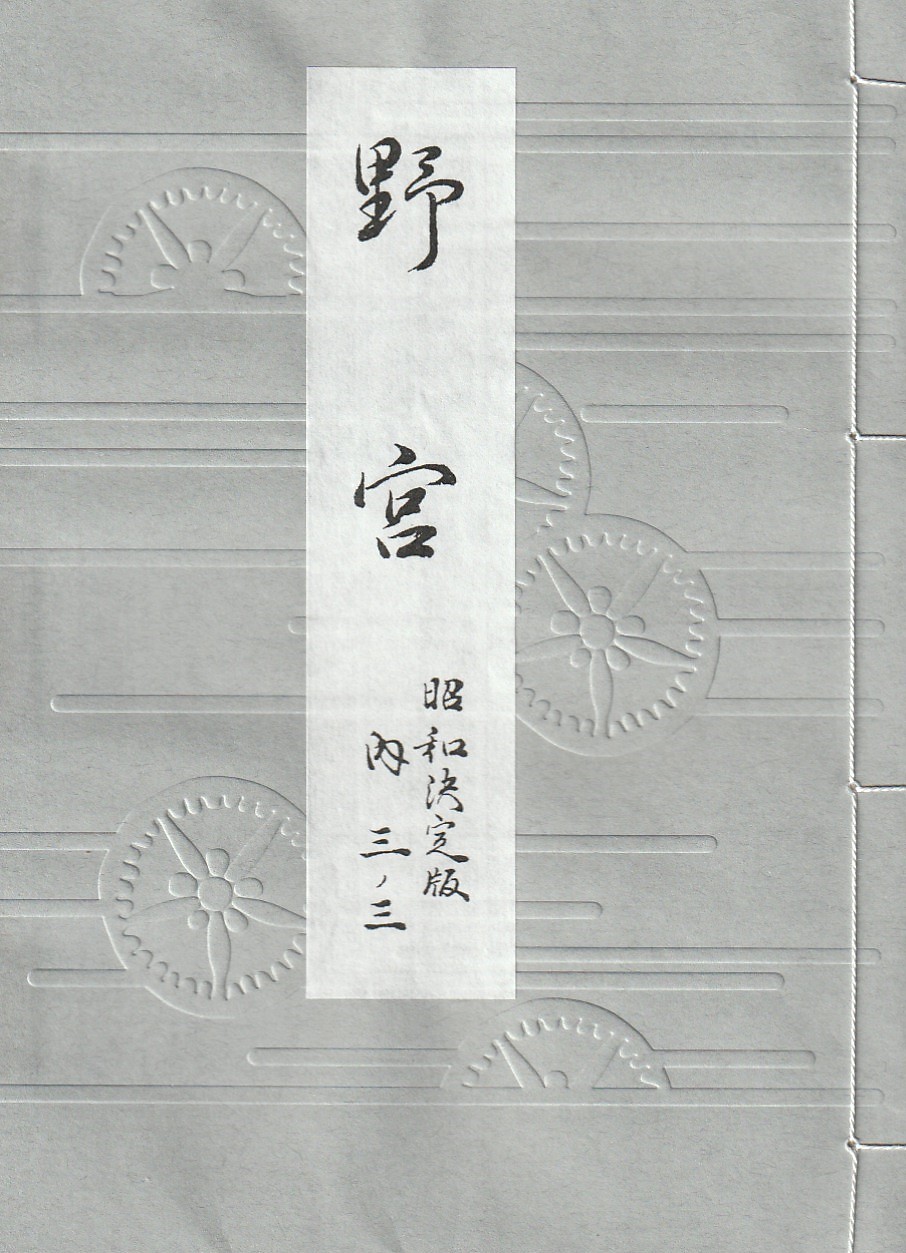 野宮
昭和決定版
内 三ノ三